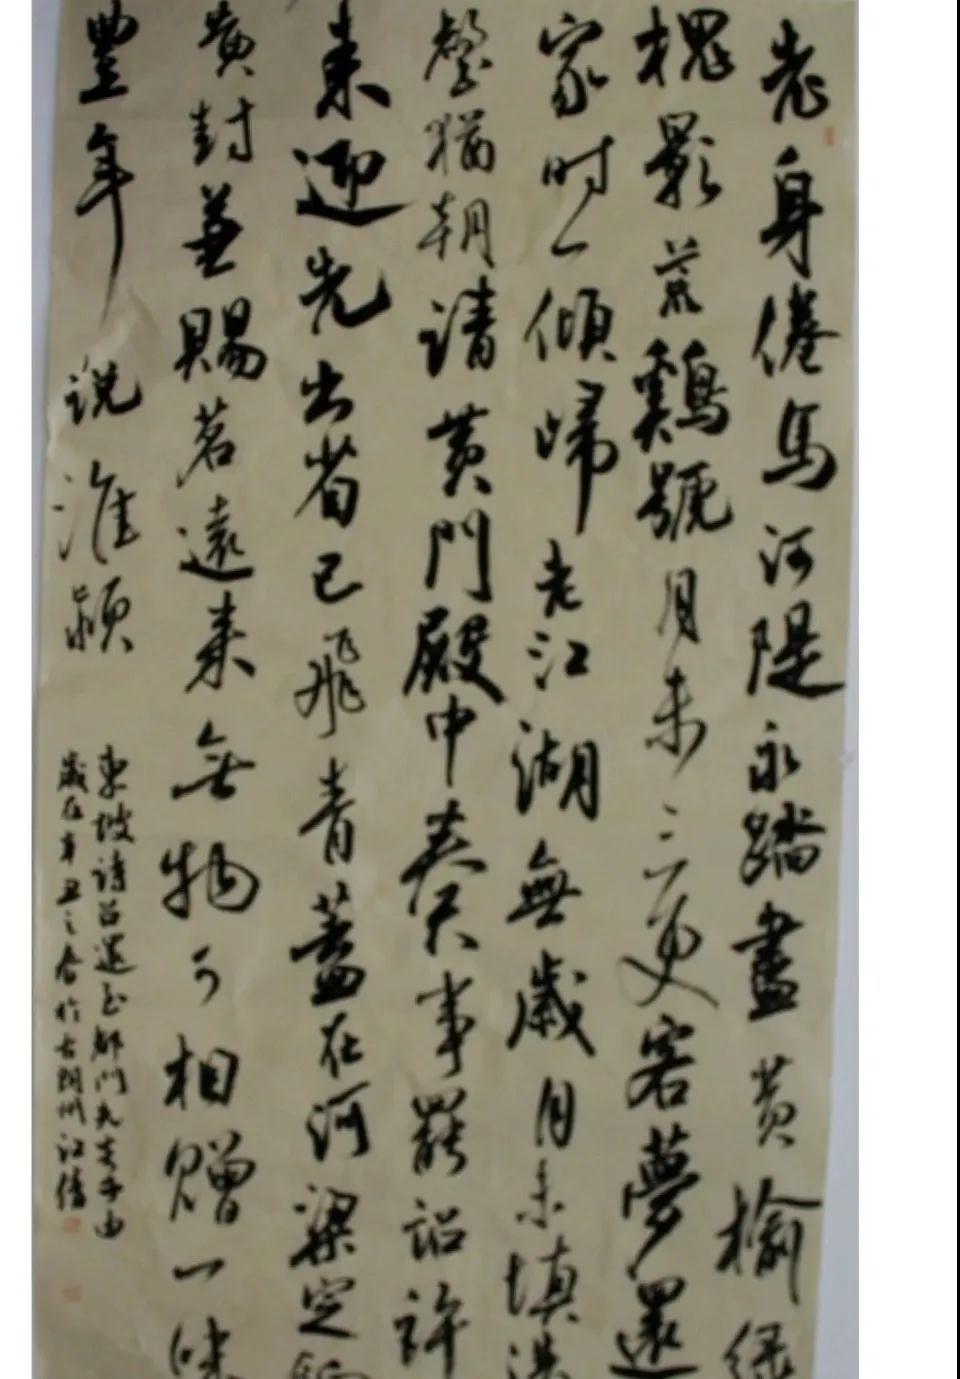 老身倦馬河堤永踏盡黃榆綠
槐影荒雞號月未三更客夢還
家時一傾歸老江湖無歲月未填溝
壑猶朝請黃門殿中奏事罷詔許
來迎先出省已飛青蓋在河梁定餉
黃封兼賜茗遠來無物可相贈一味
豐年說淮潁
東坡詩召還至都門先寄子由
歲在辛丑之春於古朗州